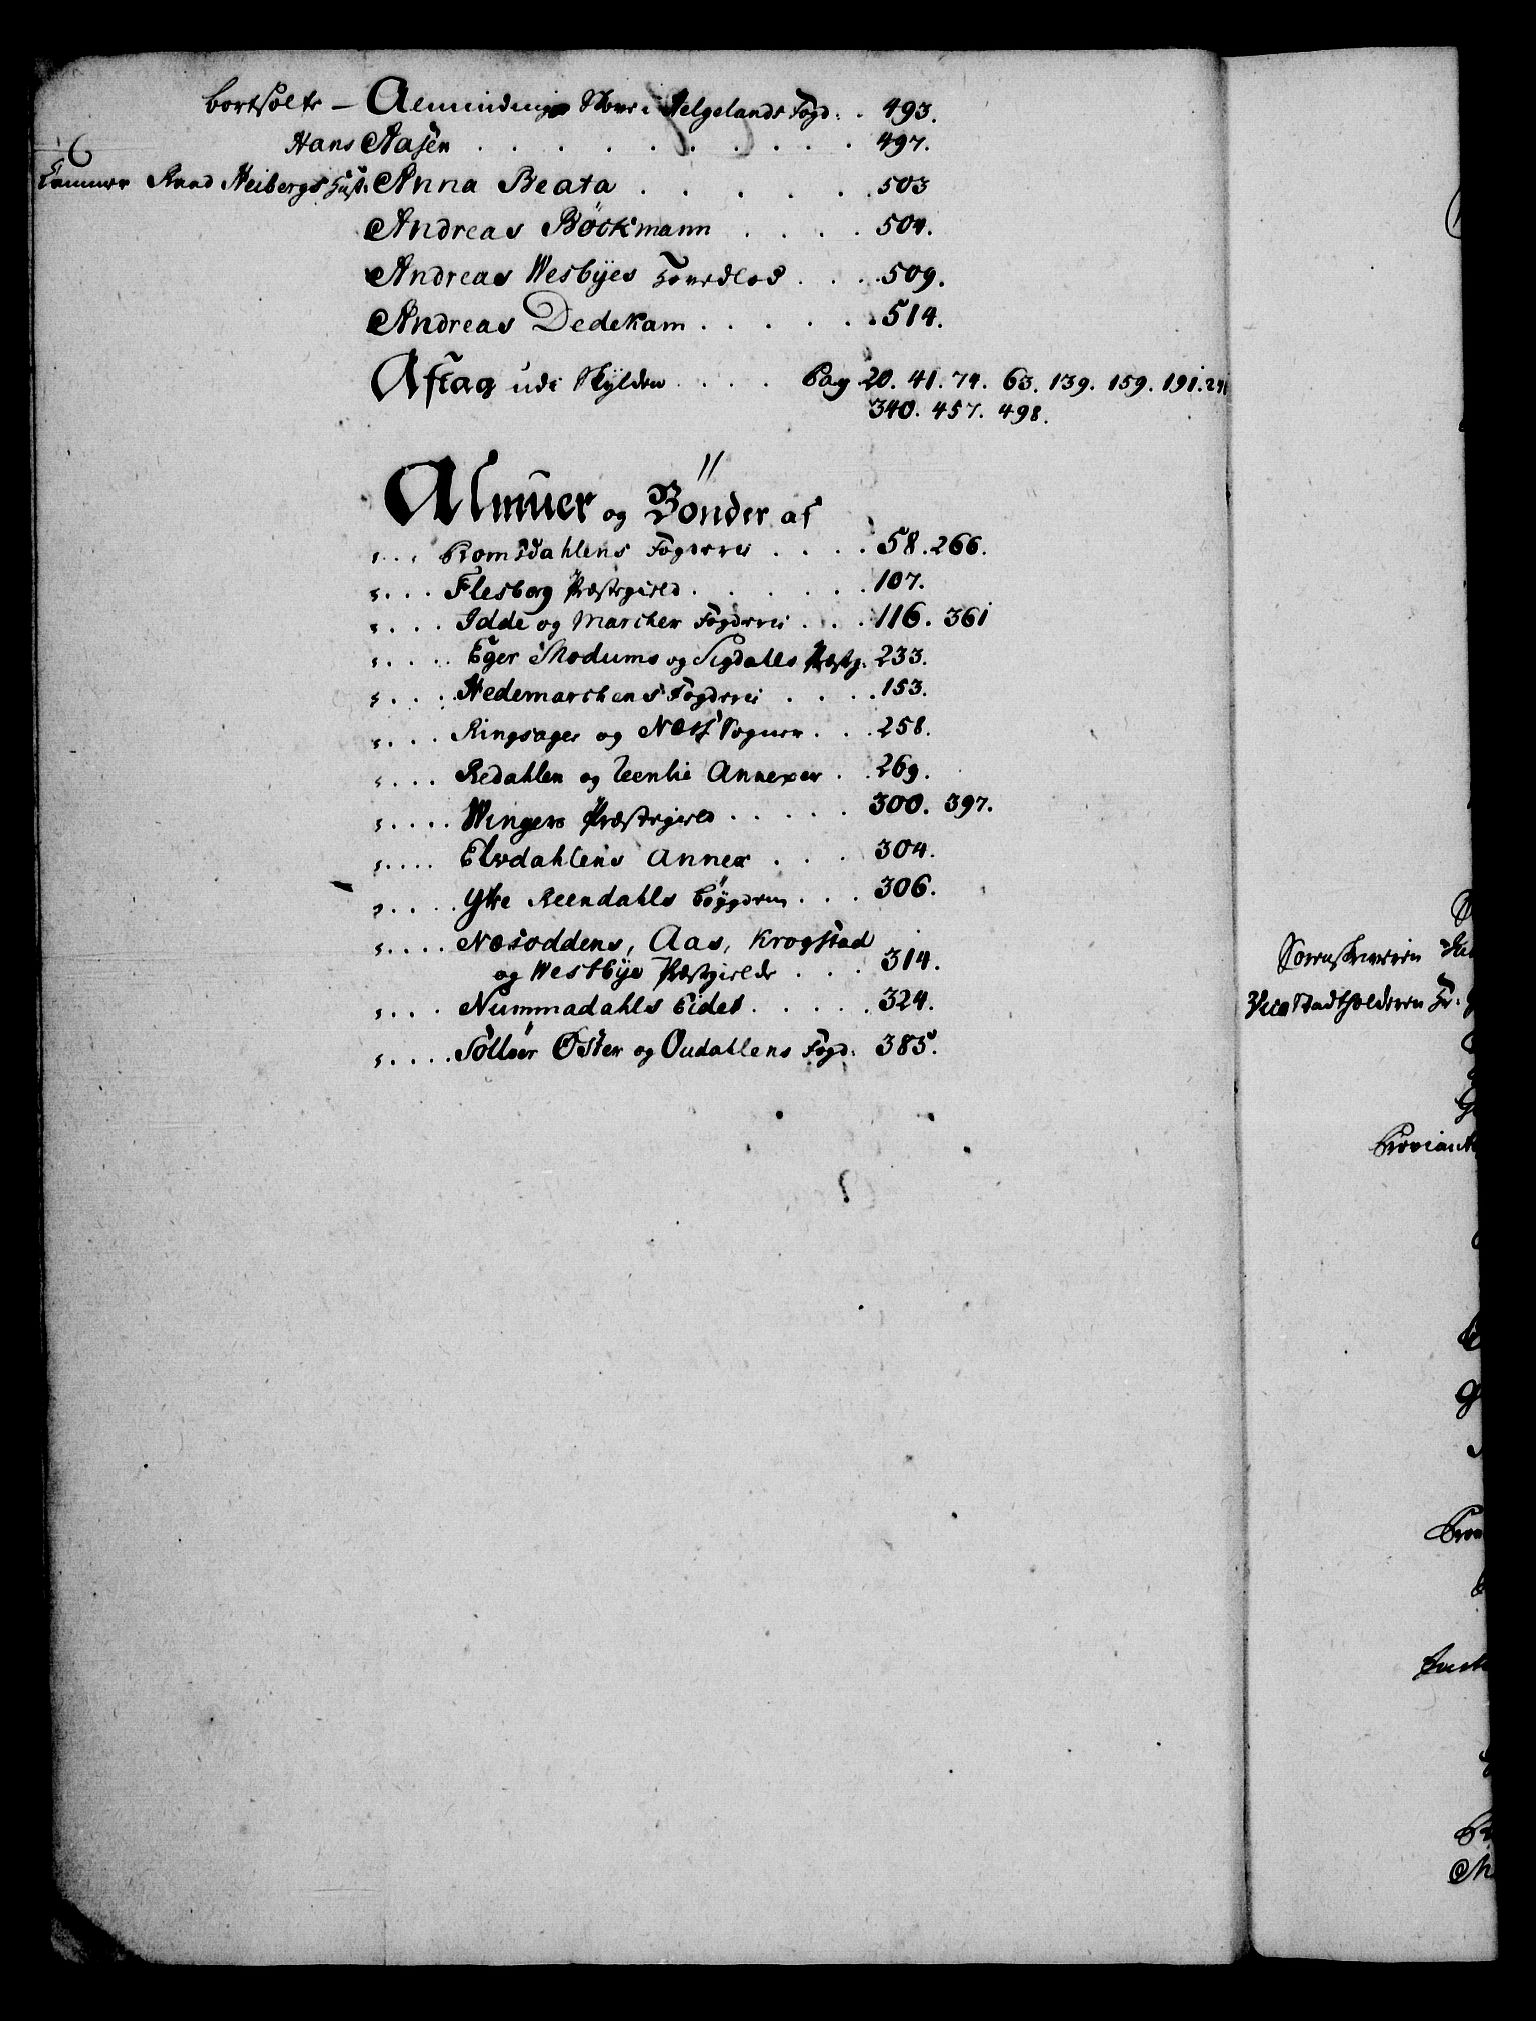 bortsolte – Almindings Skove i Helgelands Fogd: . 493.
Hans Aasen . . . . . . . . . 497.
6
Cammer Raad Heibergs Hust: Anna Beata . . . . . 503
Andreas Böckmann . . . . 504.
Andreas Wesbÿes Hovedlod . . . 509.
Andreas Dedekam . . . . . 514.
Aftag udi Skÿlden . . . . Pag 20. 41. 74. 63. 139. 159. 191.
340. 457. 498.
Almuer og Bönder af
" . . . Romsdahlens Fogderei . . . . 58. 266.
" . . . Flesberg Præstegield . . . . . . 107.
" . . . Idde og Marcker Fogderei . . . 116. 361
" . . . Eger Modums og Sigdalls Præstg: 233.
" . . . Hedemarckens Fogderei . . . . 153.
" . . . Ringsager og Næss Sogner . . . 258.
" . . . Redahlen og Annexer . . 269.
" . . . Wingers Præstegield . . . . . 300. 397.
" . . . Elvdahlens Annex . . . 304.
" . . . Ytre Reendahls Bÿgden . . . 306.
" . . . Næsoddens, Aas, Krogstad
og Westbÿe Præstgielde . . . 314.
" . . . Nummadahls Eidet . . . . . 324.
" . . . Sollöer Öster og Oudahlens Fogd: 385.
Sorenskriveren
Vice Stadtholderen Fr:
Proviant